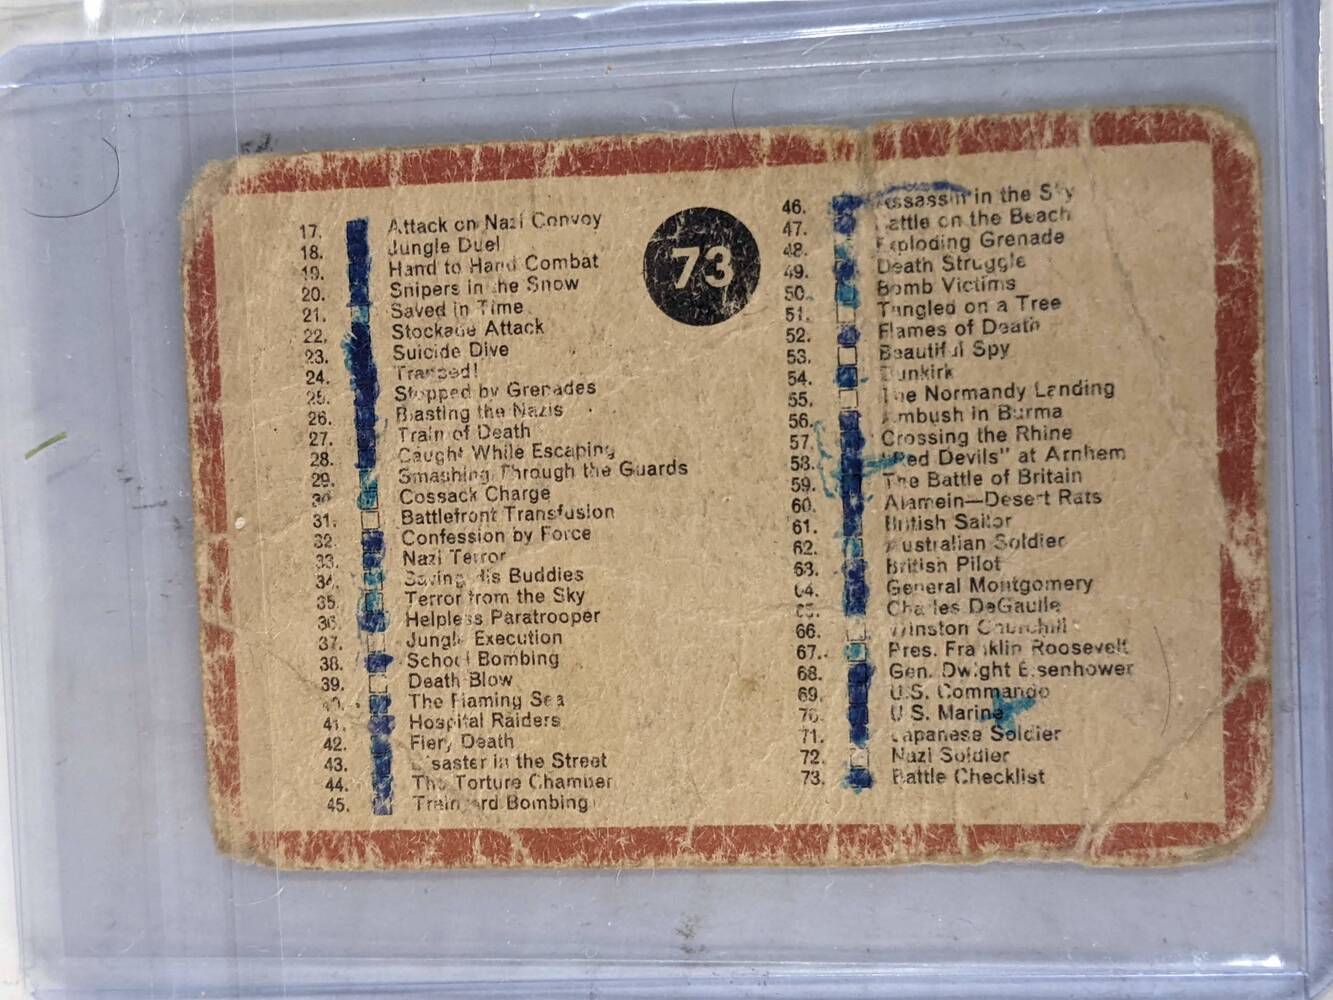 17. Attack on Nazi Convoy
18. Jungle Duel
19. Hand to Hand Combat
20. Snipers in the Snow
21. Saved in Time
22. Stockade Attack
23. Suicide Dive
24. Trapped!
25. Stopped by Grenades
26. Blasting the Nazis
27. Train of Death
28. Caught While Escaping
29. Smashing Through the Guards
30. Cossack Charge
31. Battlefront Transfusion
32. Confession by Force
33. Nazi Terror
34. Saving His Buddies
35. Terror from the Sky
36. Helpless Paratrooper
37. Jungle Execution
38. School Bombing
39. Death Blow
40. The Flaming Sea
41. Hospital Raiders
42. Fiery Death
43. Disaster in the Street
44. The Torture Chamber
45. Trainyard Bombing
73
46. Assassin in the Sky
47. Battle on the Beach
48. Exploding Grenade
49. Death Struggle
50. Bomb Victims
51. Tangled on a Tree
52. Flames of Death
53. Beautiful Spy
54. Dunkirk
55. The Normandy Landing
56. Ambush in Burma
57. Crossing the Rhine
58. "Red Devils" at Arnhem
59. The Battle of Britain
60. Alamein—Desert Rats
61. British Sailor
62. Australian Soldier
63. British Pilot
64. General Montgomery
65. Charles DeGaulle
66. Winston Churchill
67. Pres. Franklin Roosevelt
68. Gen. Dwight Eisenhower
69. U.S. Commando
70. U.S. Marine
71. Japanese Soldier
72. Nazi Soldier
73. Battle Checklist